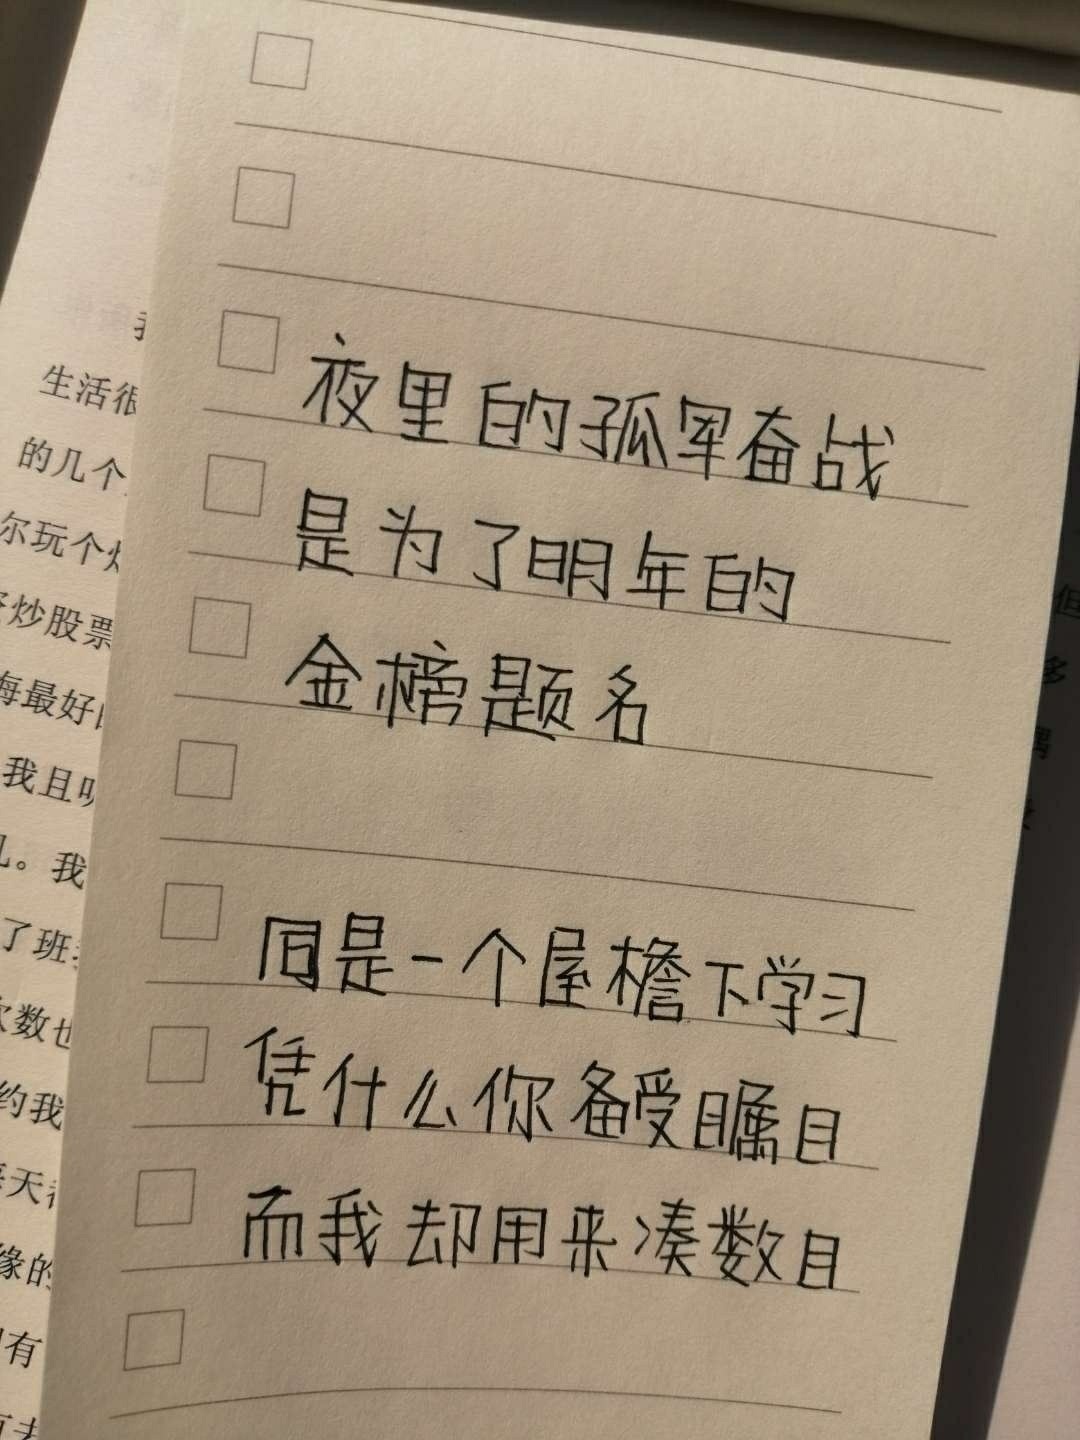 夜里的孤军奋战
是为了明年的
金榜题名
同是一个屋檐下学习
凭什么你备受瞩目
而我却用来凑数目
生活很
的几个
尔玩个
炒股票
海最好
我且
。我
了班
数也
约我
天
缘的
有
但
多